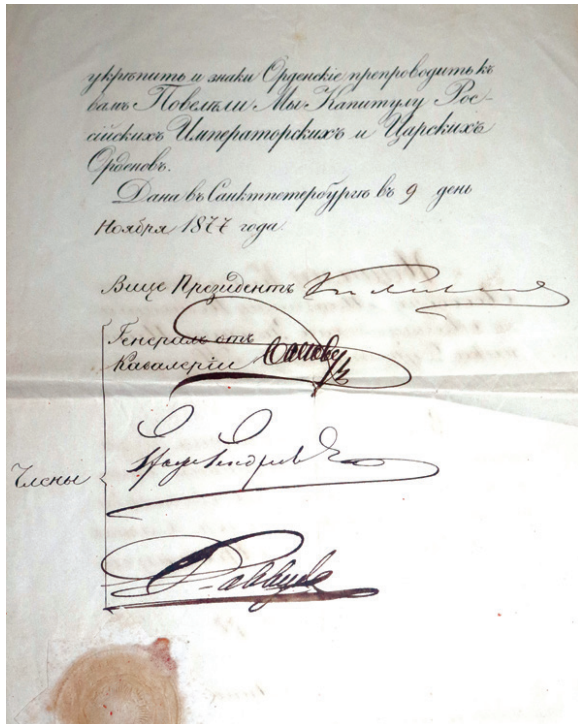 укрѣпить и знаки Орденскіе препроводить къ
вамъ Повелѣли Мы Капитулу Рос-
сійскихъ Императорскихъ и Царскихъ
Орденовъ.
Дана въ Санктпетербургѣ въ 9 день
Ноября 1877 года.
Вице Президентъ
Генералъ отъ
Кавалеріи
Члены